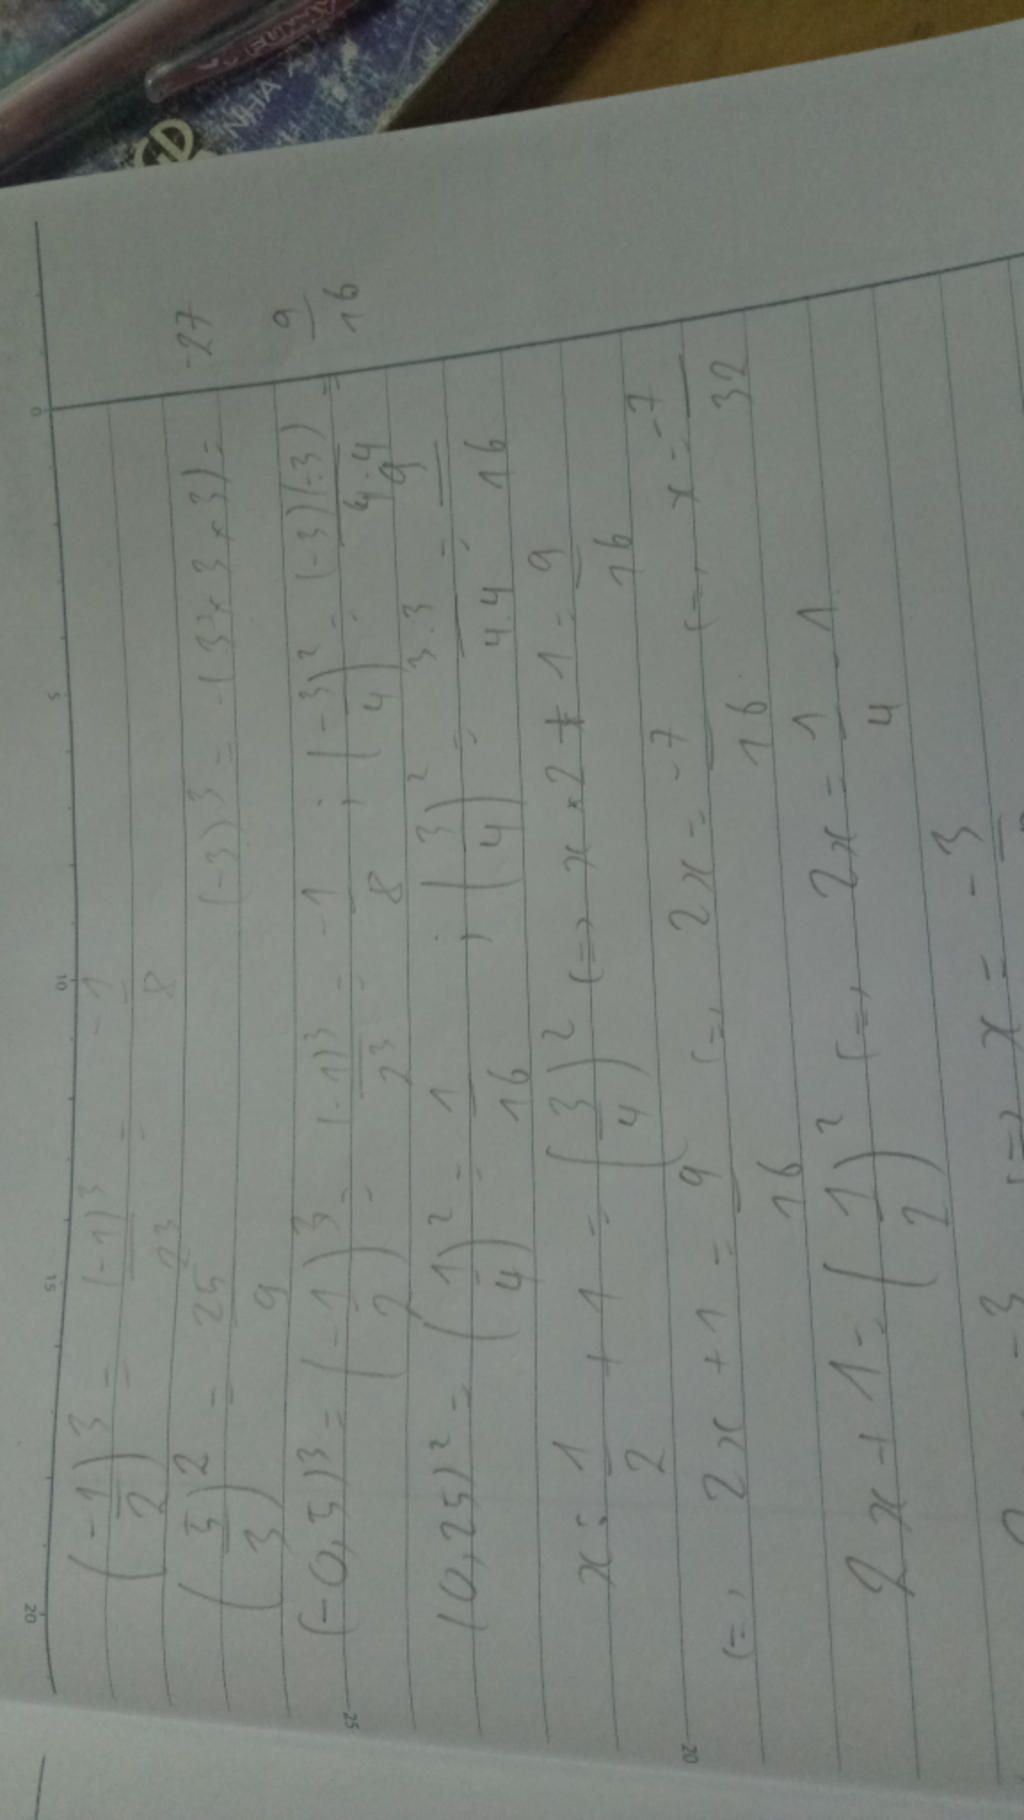 (-1/2)³ = (-1)³/2³ = -1/8
(5/3)² = 25/9 (-3)³ = -(3 x 3 x 3) = -27
(-0,5)³ = (-1/2)³ = (-1)³/2³ = -1/8 ; (-3/4)² = (-3)(-3)/4.4 = 9/16
(0,25)² = (1/4)² = 1/16 ; (3/4)² = 3.3/4.4 = 9/16
x : 1/2 + 1 = (3/4)² (=> x . 2 + 1 = 9/16
(=> 2x + 1 = 9/16 (=> 2x = -7/16 (=> x = -7/32
2x + 1 = (1/2)² (=> 2x = 1/4 - 1
-3 (=> x = -3